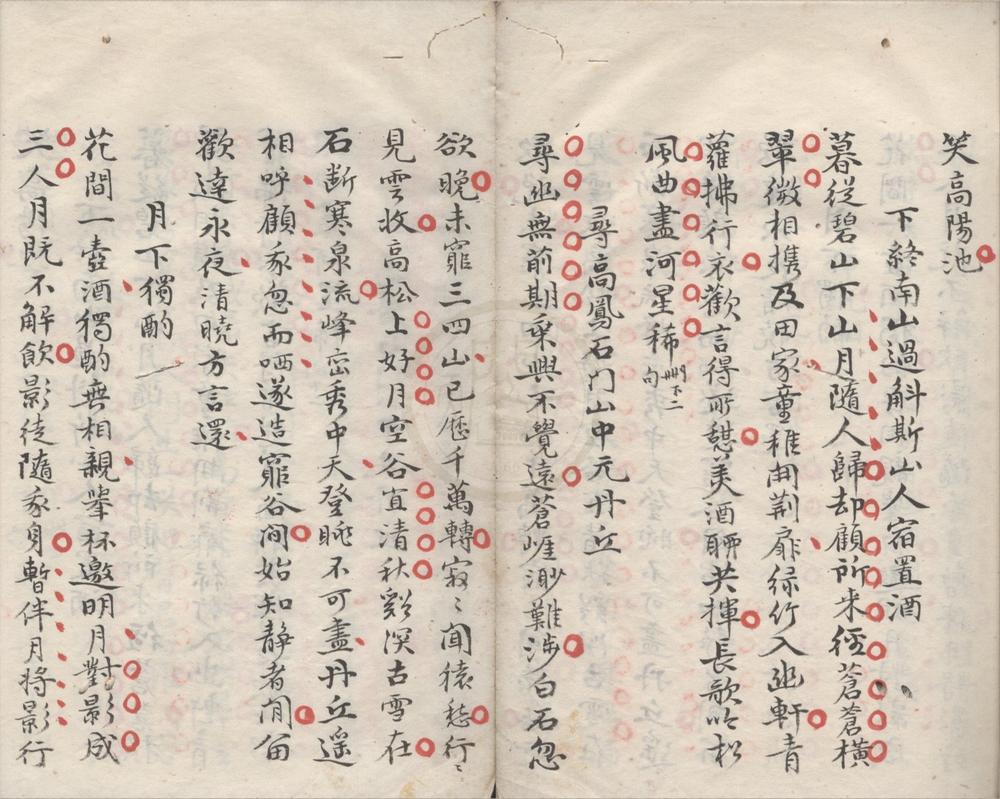 笑高陽池
下終南山過斛斯山人宿置酒
暮從碧山下山月隨人歸却顧所来徑蒼蒼橫
翠微相携及田家童稚開荆扉緑竹入幽軒青
蘿拂行衣歡言得所憩美酒聊共揮長歌吟松
風曲盡河星稀刪下二句
尋高鳳石門山中元丹丘
尋幽無前期乗興不覺遠蒼崖渺難涉白石忽
欲晚未窮三四山已歷千萬轉寂〻聞猿愁行〻
見雲收高松上好月空谷宜清秋谿深古雪在
石断寒泉流峰巒秀中天登眺不可盡丹丘遥
相呼顧我忽而哂遂造窮谷间始知静者闲留
歡達永夜清曉方言還
月下獨酌
花間一壺酒獨酌無相親舉杯邀明月對影成
三人月既不解飲影徒隨我身暫伴月將影行